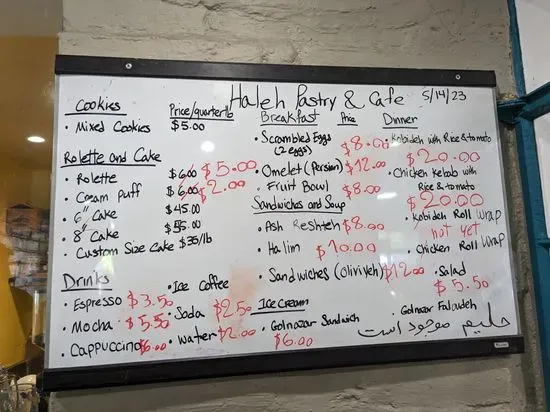 Haleh Pastry & Cafe 5/14/23
Cookies Price/quarter lb
• Mixed Cookies $5.00
Rolette and Cake
• Rolette $6.00 $5.00
• Cream puff $6.00 $2.00
• 6" Cake $45.00
• 8" Cake $55.00
• Custom Size Cake $35/lb
Drinks
• Espresso $3.50
• Mocha $5.50
• Cappuccino $6.00
• Ice Coffee
• Soda $2.50
• Water $2.00
Breakfast Price
• Scrambled Eggs $8.00
(2 eggs)
• Omelet (Persian) $12.00
• Fruit Bowl $8.00
Sandwiches and Soup
• Ash Reshteh $8.00
• Halim $10.00
• Sandwiches (Oliviyeh) $12.00
Ice Cream
• Golnazar Sandwich
$6.00
Dinner
• Kobideh with Rice & tomato
$20.00
• Chicken Kebab with
Rice & tomato
$20.00
• Kobideh Roll Wrap
not yet
• Chicken Roll Wrap
• Salad
$5.50
• Golnazar Faloudeh
حلیم موجود است